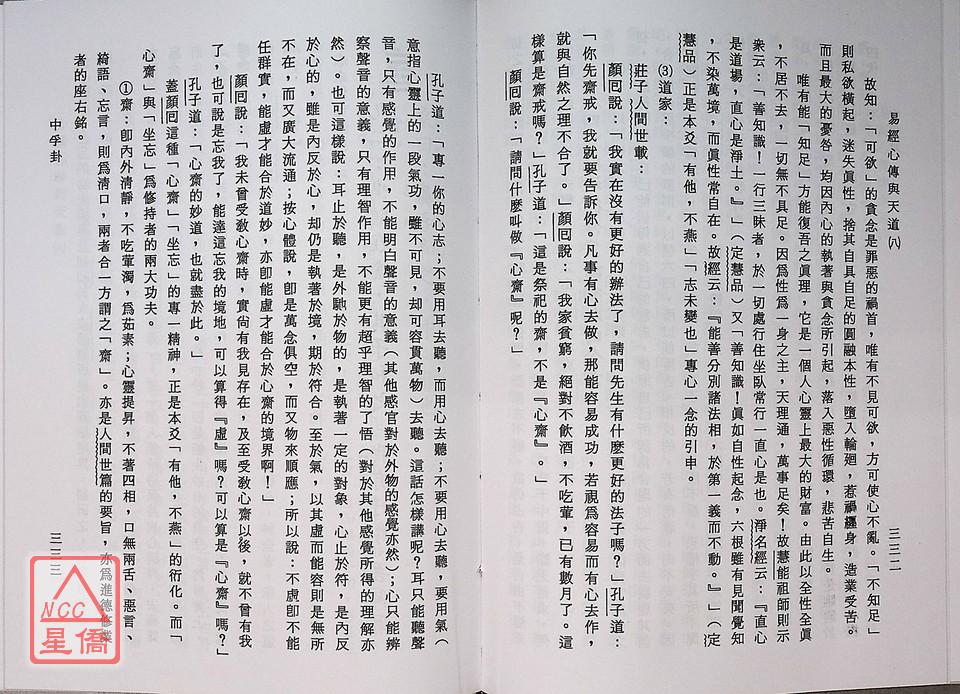 易經心傳與天道(八)
三三二
故知:「可欲」的貪念是罪惡的禍首,唯有不見可欲,方可使心不亂。「不知足」
則私欲橫起,迷失眞性,捨其自具自足的圓融本性,墮入輪廻,惹禍纒身,造業受苦。
而且最大的憂咎,均因內心的執著與貪念所引起,落入惡性循環,悲苦自生。
唯有能「知足」方能復吾之眞理,它是一個人心靈上最大的財富。由此以全性全眞
,不居不去,一切無不具足。因爲性爲一身之主,天理通,萬事足矣!故慧能祖師則示
衆云:「善知識!一行三昧者,於一切處行住坐臥常行一直心是也。淨名經云:『直心
是道場,直心是淨土。』」(定慧品)又「善知識!眞如自性起念,六根雖有見聞覺知
,不染萬境,而眞性常自在。故經云:『能善分別諸法相,於第一義而不動。』」(定
慧品)正是本爻「有他,不燕」「志未變也」專心一念的引申。
⑶道家:
莊子人間世載:
顏囘說:「我實在沒有更好的辦法了,請問先生有什麽更好的法子嗎?」孔子道:
「你先齋戒,我就要告訴你。凡事有心去做,那能容易成功,若視爲容易而有心去作,
就與自然之理不合了。」顏囘說:「我家貧窮,絕對不飮酒,不吃葷,已有數月了。這
樣算是齋戒嗎?」孔子道:「這是祭祀的齋,不是『心齋』。」
顏囘說:「請問什麽叫做『心齋』呢?」
孔子道:「專一你的心志;不要用耳去聽,而用心去聽;不要用心去聽,要用氣(
意指心靈上的一段氣功,雖不可見,却可容貫萬物)去聽。這話怎樣講呢?耳只能聽聲
音,只有感覺的作用,不能明白聲音的意義(其他感官對於外物的感覺亦然);心只能辨
察聲音的意義,只有理智作用,不能更有超乎理智的了悟(對於其他感覺所得的理解亦
然)。也可這樣說:耳止於聽,是外馳於物的,是執著一定的對象,心止於符,是內反
於心的,雖是內反於心,却仍是執著於境,期於符合。至於氣,以其虛而能容則是無所
不在,而又廣大流通;按心體說,卽是萬念俱空,而又物來順應;所以說:不虛卽不能
任群實,能虛才能合於道妙,亦卽能虛才能合於心齋的境界啊!」
顏囘說:「我未曾受敎心齋時,實尙有我見存在,及至受敎心齋以後,就不曾有我
了,也可說是忘我了,能達這忘我的境地,可以算得『虛』嗎?可以算是『心齋』嗎?」
孔子道:「心齋的妙道,也就盡於此。」
蓋顏囘這種「心齋」「坐忘」的專一精神,正是本爻「有他,不燕」的衍化。而「
心齋」與「坐忘」爲修持者的兩大功夫。
①齋:卽內外清靜,不吃葷濁,爲茹素;心靈提昇,不著四相,口無兩舌、惡言、
綺語、忘言,則爲淸口,兩者合一方謂之「齋」。亦是人間世篇的要旨,亦爲進德修業
者的座右銘。
中孚卦
三三三
NCC
星僑